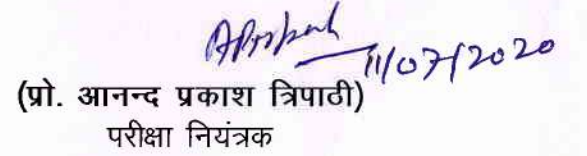 11/07/2020
(प्रो. आनन्द प्रकाश त्रिपाठी)
परीक्षा नियंत्रक